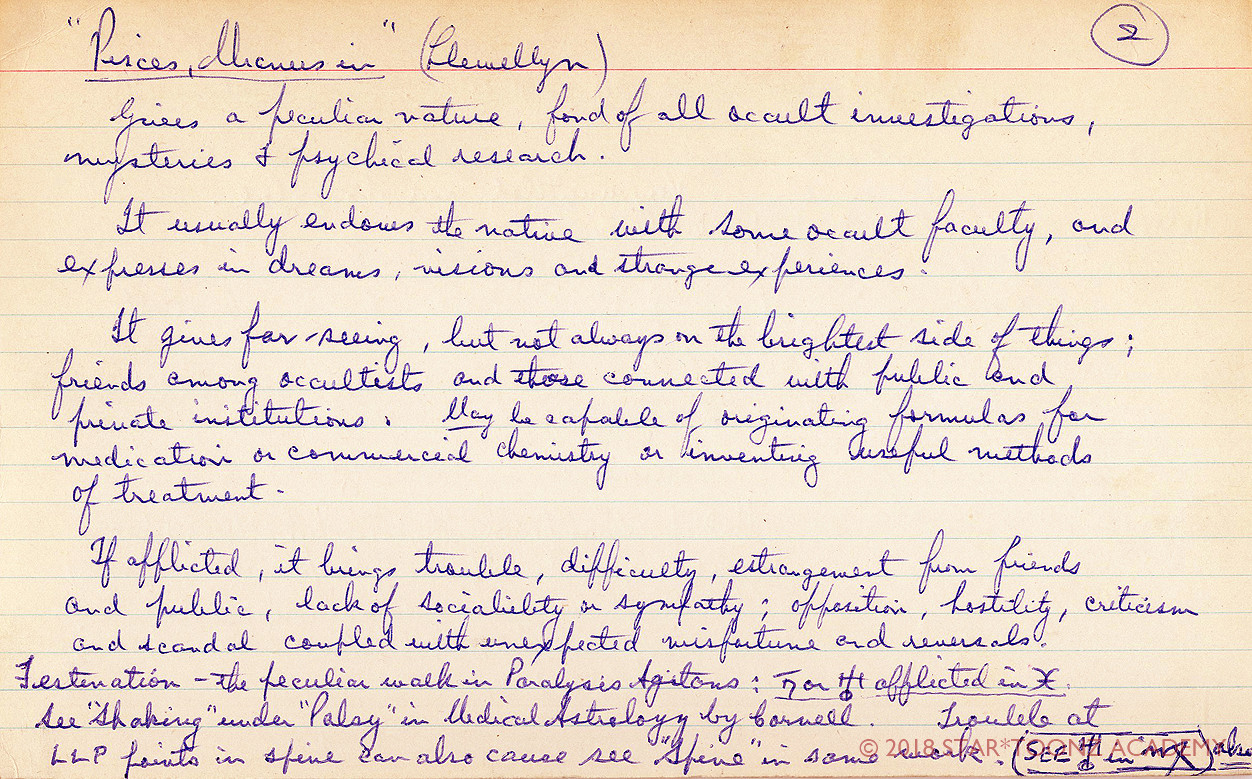 "Pisces, Uranus in" (Llewellyn) 2
Gives a peculiar nature, fond of all occult investigations,
mysteries & psychical research.
It usually endows the native with some occult faculty, and
expresses in dreams, visions and strange experiences.
It gives far-seeing, but not always on the brightest side of things;
friends among occultists and those connected with public and
private institutions. May be capable of originating formulas for
medication or commercial chemistry or inventing useful methods
of treatment.
If afflicted, it brings trouble, difficulty, estrangement from friends
and public, lack of sociability or sympathy; opposition, hostility, criticism
and scandal coupled with unexpected misfortune and reversals.
Festination - the peculiar walk in Paralysis Agitans: ♄ or ♅ afflicted in ♓.
See "Shaking" under "Palsy" in Medical Astrology by Cornell. Trouble at
LLP points in spine can also cause see "Spine" in same work. (SEE ♅ in also
© 2018 STAR*TOONZ ACADEMY